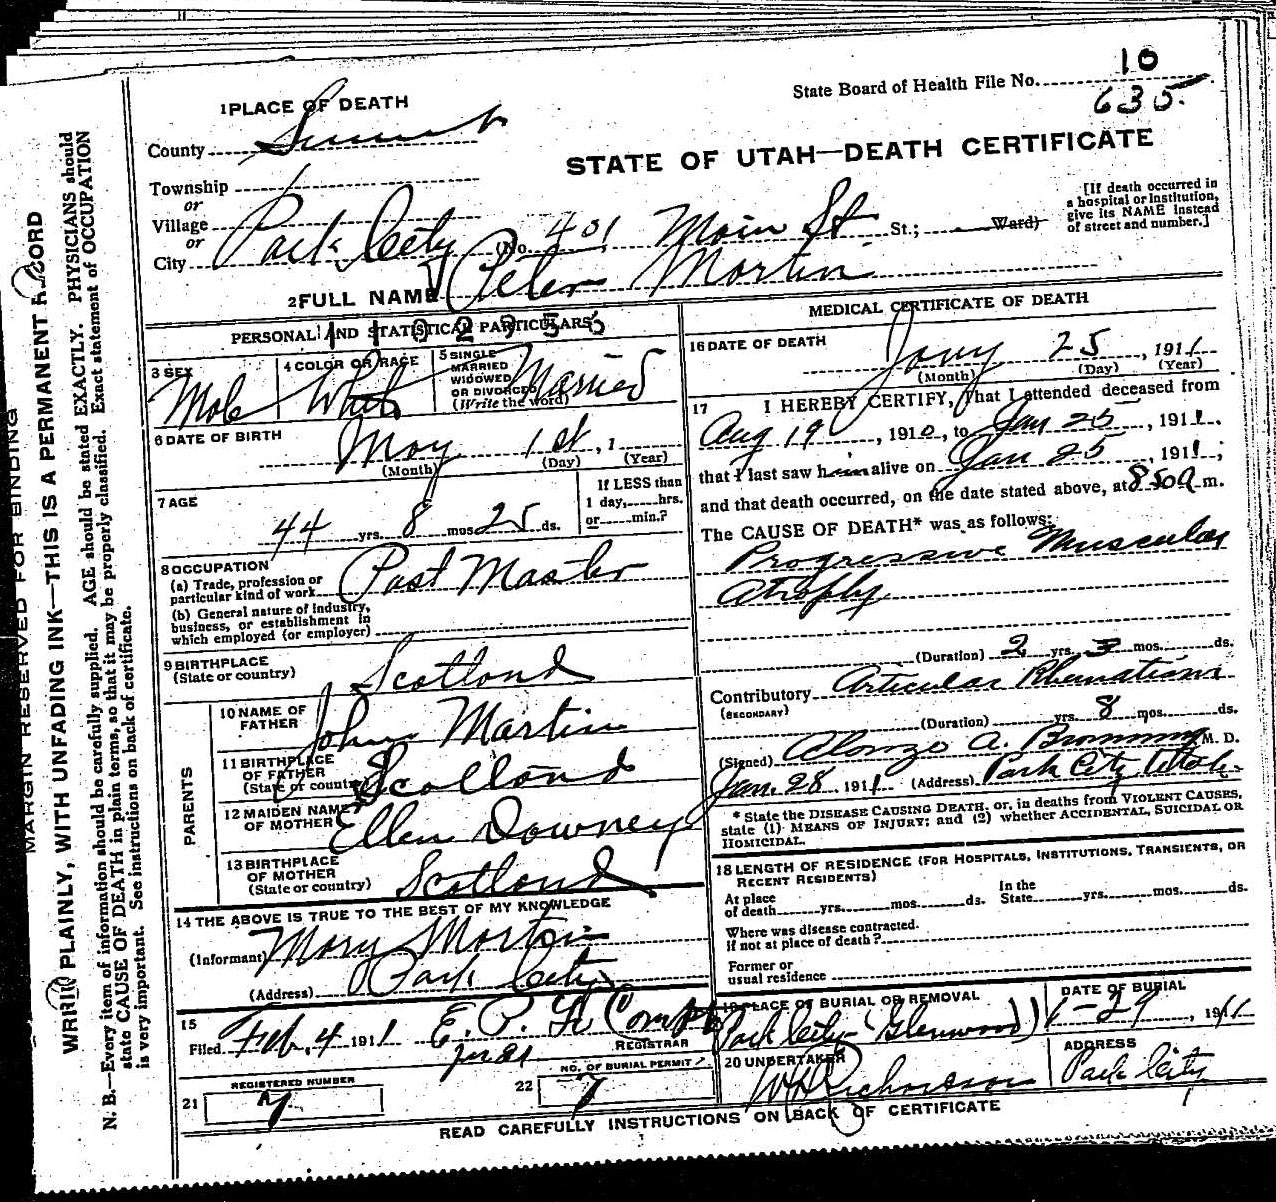 State Board of Health File No. 10
635.
1 PLACE OF DEATH
County Summit
STATE OF UTAH—DEATH CERTIFICATE
Township
or
Village
or
City Park City (No. 401 Main St. St.; Ward)
[If death occurred in
a hospital or institution,
give its NAME instead
of street and number.]
2 FULL NAME Peter Martin
PERSONAL AND STATISTICAL PARTICULARS
3 SEX Male
4 COLOR OR RACE White
5 SINGLE
MARRIED
WIDOWED
OR DIVORCED
(Write the word) Married
6 DATE OF BIRTH
May 1st, 1
(Month) (Day) (Year)
7 AGE
44 yrs. 8 mos. 25 ds.
If LESS than
1 day, hrs.
or min.?
8 OCCUPATION
(a) Trade, profession or
particular kind of work Post Master
(b) General nature of industry,
business, or establishment in
which employed (or employer)
9 BIRTHPLACE
(State or country) Scotland
PARENTS
10 NAME OF
FATHER John Martin
11 BIRTHPLACE
OF FATHER
(State or country) Scotland
12 MAIDEN NAME
OF MOTHER Ellen Downey
13 BIRTHPLACE
OF MOTHER
(State or country) Scotland
14 THE ABOVE IS TRUE TO THE BEST OF MY KNOWLEDGE
(Informant) Mary Martin
(Address) Park City
15
Filed Feb. 4 1911 E. P.
REGISTRAR
REGISTERED NUMBER
21 7
NO. OF BURIAL PERMIT
22 7
MEDICAL CERTIFICATE OF DEATH
16 DATE OF DEATH
Jany 25, 1911
(Month) (Day) (Year)
17 I HEREBY CERTIFY, That I attended deceased from
Aug 19, 1910, to Jan 25, 1911.
that I last saw him alive on Jan 25, 1911;
and that death occurred, on the date stated above, at 850a m.
The CAUSE OF DEATH* was as follows:
Progressive Muscular
Atrophy
(Duration) 2 yrs. 3 mos. ds.
Contributory Articular Rhematism
(SECONDARY)
(Duration) yrs. 8 mos. ds.
(Signed) Alonzo A. M. D.
Jan. 28 1911 (Address) Park City Utah.
* State the DISEASE CAUSING DEATH, or, in deaths from VIOLENT CAUSES,
state (1) MEANS OF INJURY; and (2) whether ACCIDENTAL, SUICIDAL OR
HOMICIDAL.
18 LENGTH OF RESIDENCE (FOR HOSPITALS, INSTITUTIONS, TRANSIENTS, OR
RECENT RESIDENTS)
At place
of death yrs. mos. ds.
In the
State yrs. mos. ds.
Where was disease contracted.
if not at place of death?
Former or
usual residence
19 PLACE OF BURIAL OR REMOVAL
Park City (Glenwood)
DATE OF BURIAL
1-29, 1911
20 UNDERTAKER
W H Richardson
ADDRESS
Park City
READ CAREFULLY INSTRUCTIONS ON BACK OF CERTIFICATE
MARGIN RESERVED FOR BINDING
PLAINLY, WITH UNFADING INK—THIS IS A PERMANENT RECORD
N. B.—Every item of information should be carefully supplied. AGE should be stated EXACTLY. PHYSICIANS should
state CAUSE OF DEATH in plain terms, so that it may be properly classified. Exact statement of OCCUPATION
is very important. See instructions on back of certificate.